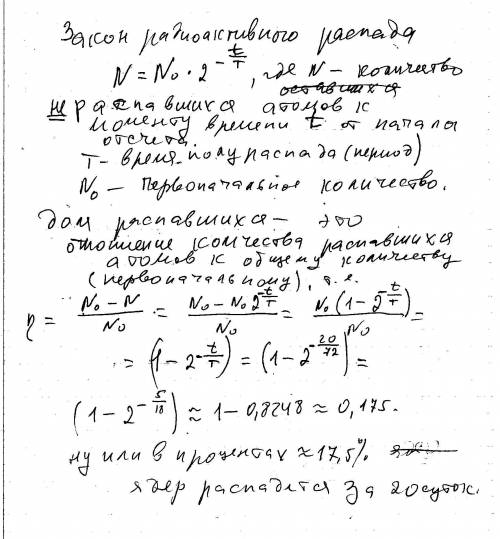 Закон радиоактивного распада
N = N₀ · 2^(-t/T), где N – количество
оставшихся
нераспавшихся атомов к
моменту времени t от начала
отсчета.
T – время полураспада (период)
N₀ – первоначальное количество.
доля распавшихся – это
отношение количества распавшихся
атомов к общему количеству
(первоначальному), т.е.
η = (N₀ - N)/N₀ = (N₀ - N₀ 2^(-t/T))/N₀ = N₀(1 - 2^(-t/T))/N₀ =
= (1 - 2^(-t/T)) = (1 - 2^(-20/72)) =
(1 - 2^(-5/18)) ≈ 1 - 0,8248 ≈ 0,175.
ну или в процентах ≈ 17,5%
ядер распадется за 20 суток.